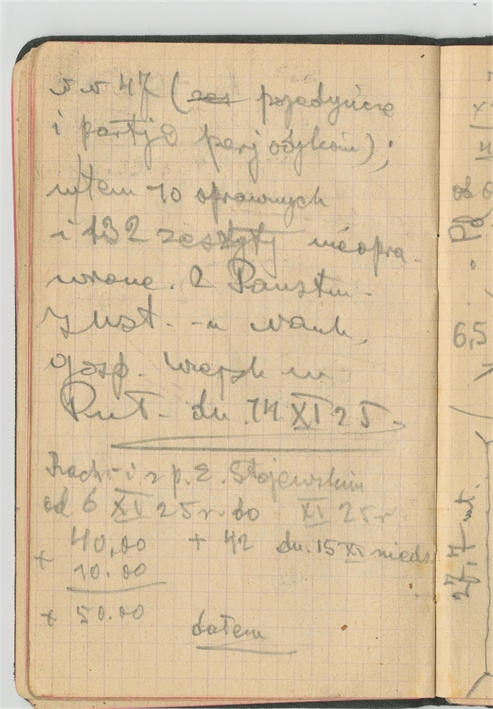 v v 47 (pojedyńcze
i partje perjodyków);
w tem 70 oprawnych
i 132 zeszyty nieopra-
wione. Z Państw.
Inst. nauk.
gosp. wiejsk w
Puł. dn. 14 XI 25.
Rach-i z p. E. Stojewskim
od 6 XI 25 r. do XI 25 r
40,00 + 42 dn. 15 XI niedz
+ 10.00
+ 50.00
dałem
6,5
27,7